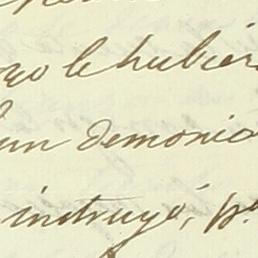 le hubier
un demonio
instruyó, p.ª